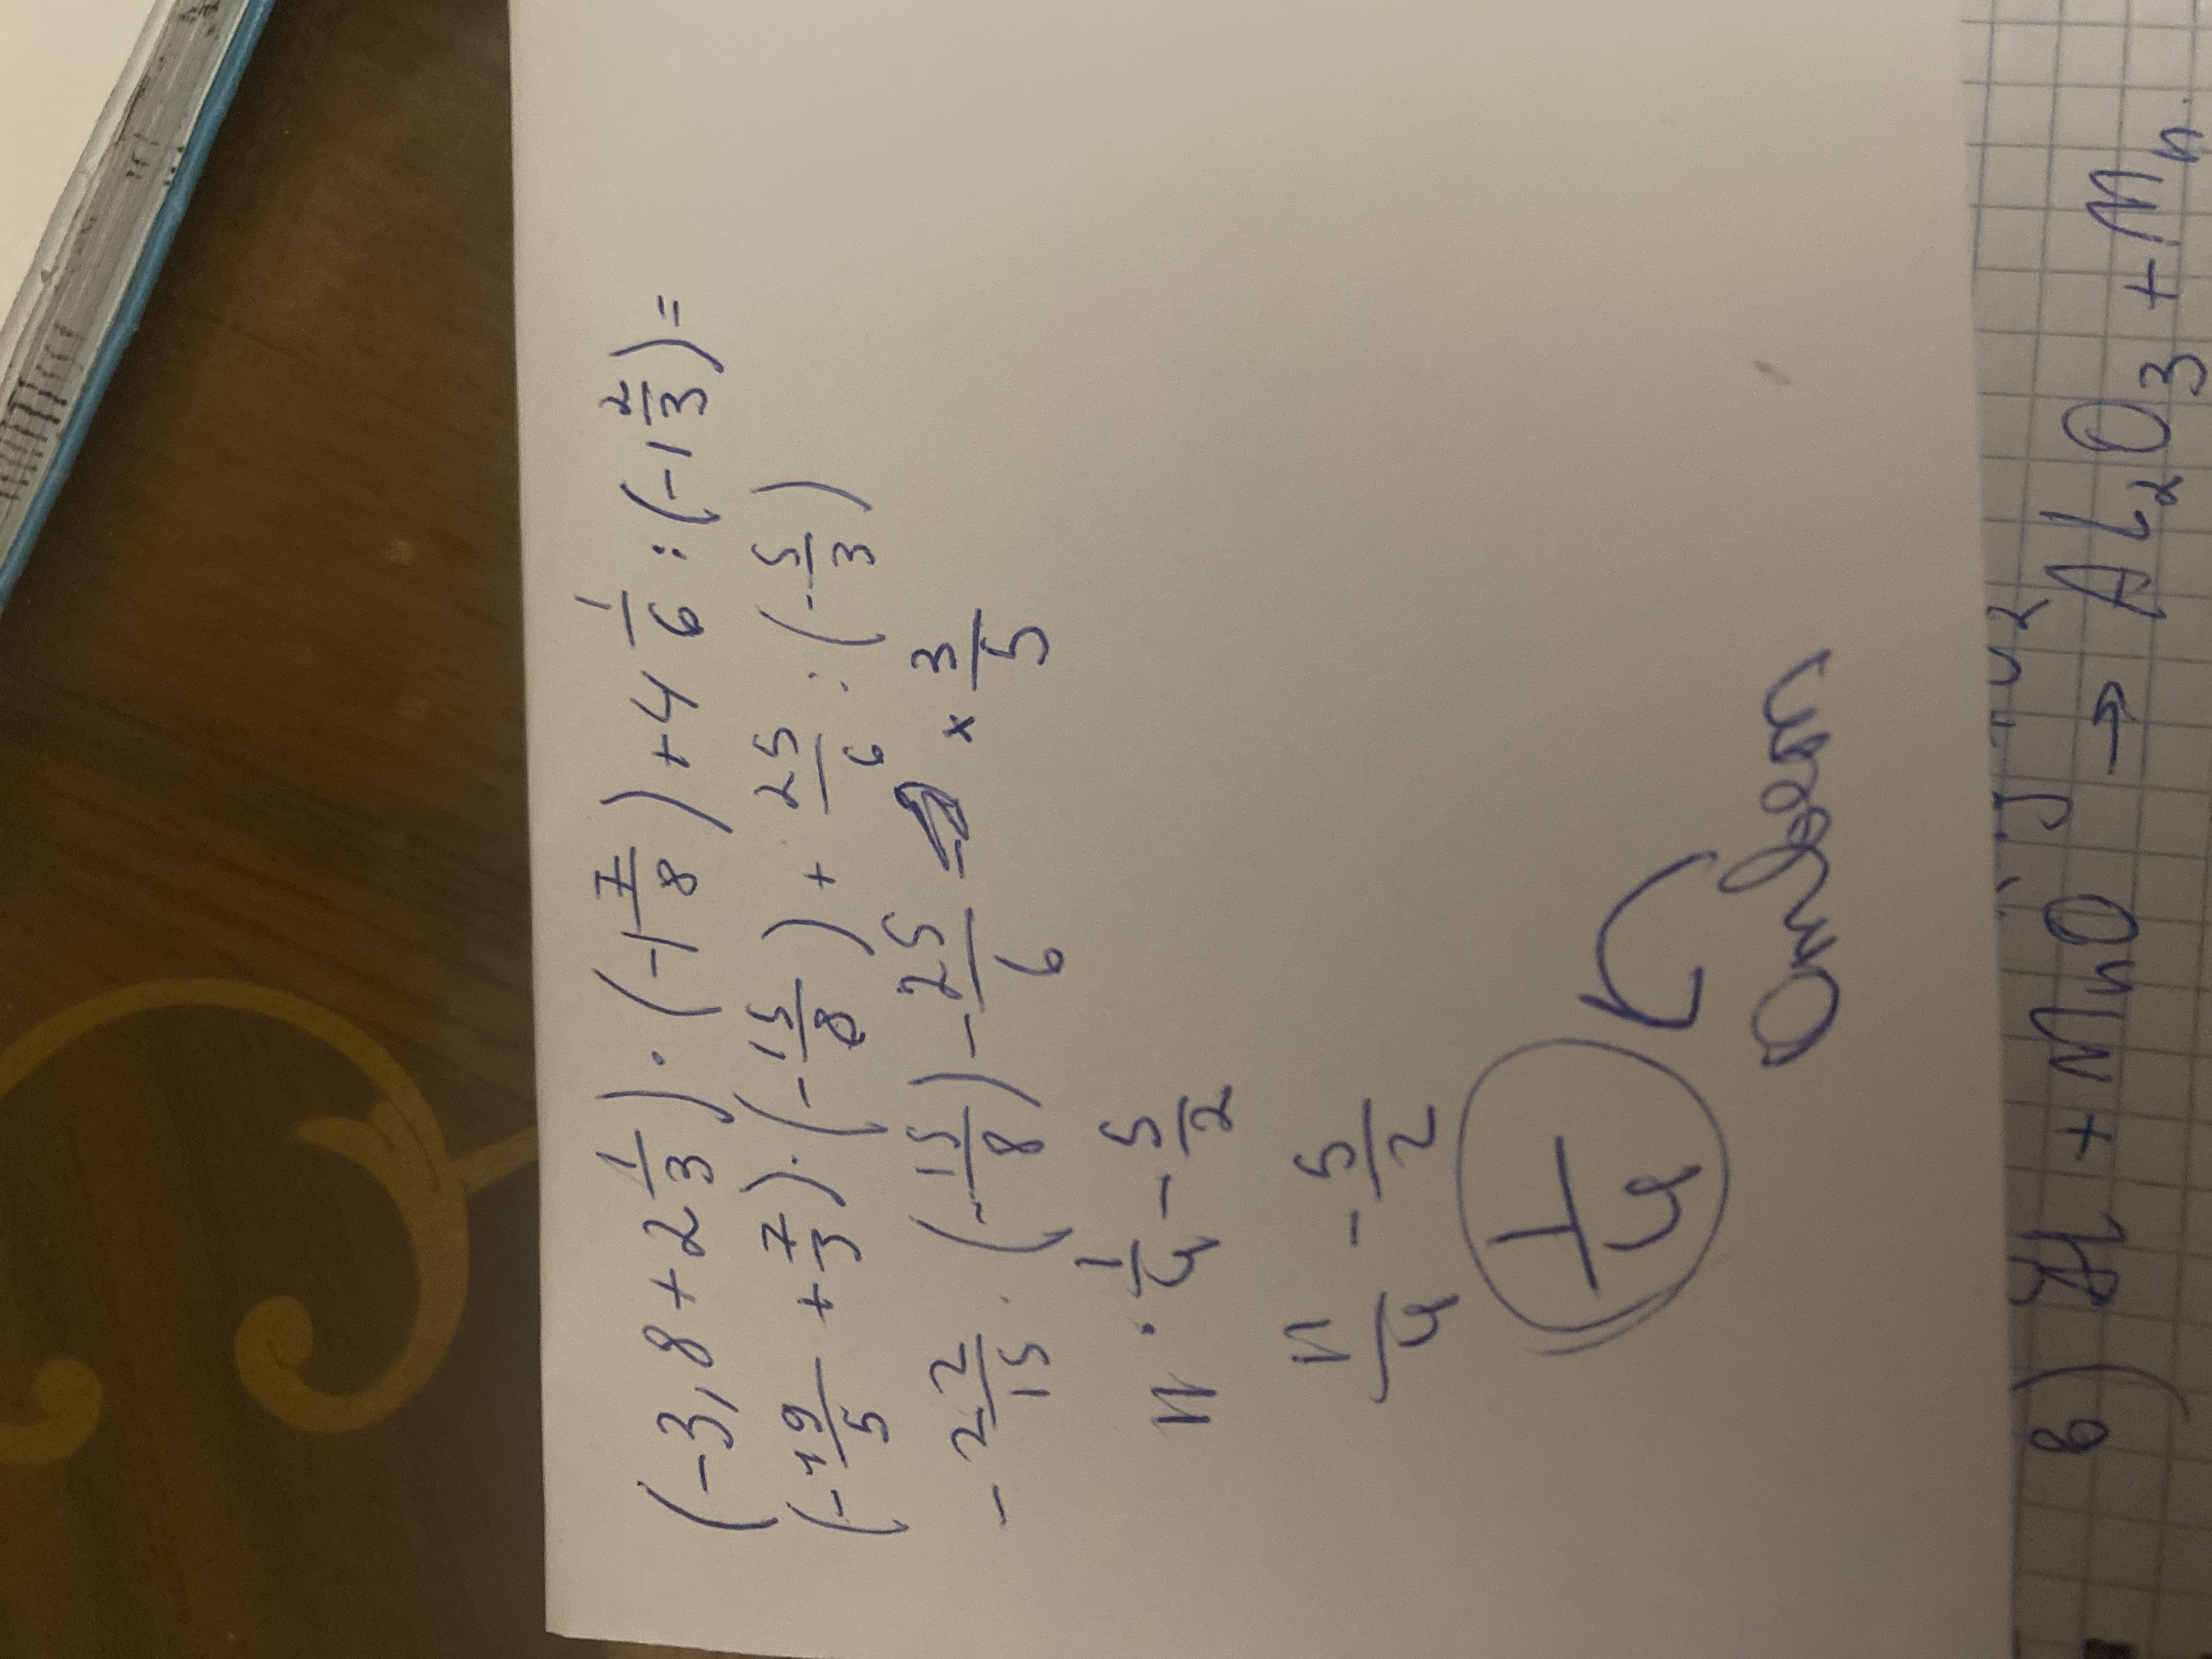 (-3,8+2 1/3)·(-1 7/8)+4 1/6:(-1 2/3)=
(-19/5+7/3)·(-15/8)+25/6:(-5/3)
-2 2/15·(-15/8)-25/6-×3/5
11·1/4-5/2
11/4-5/2
1/4
Ответ
в) Al+MnO→AL₂O₃+Mn